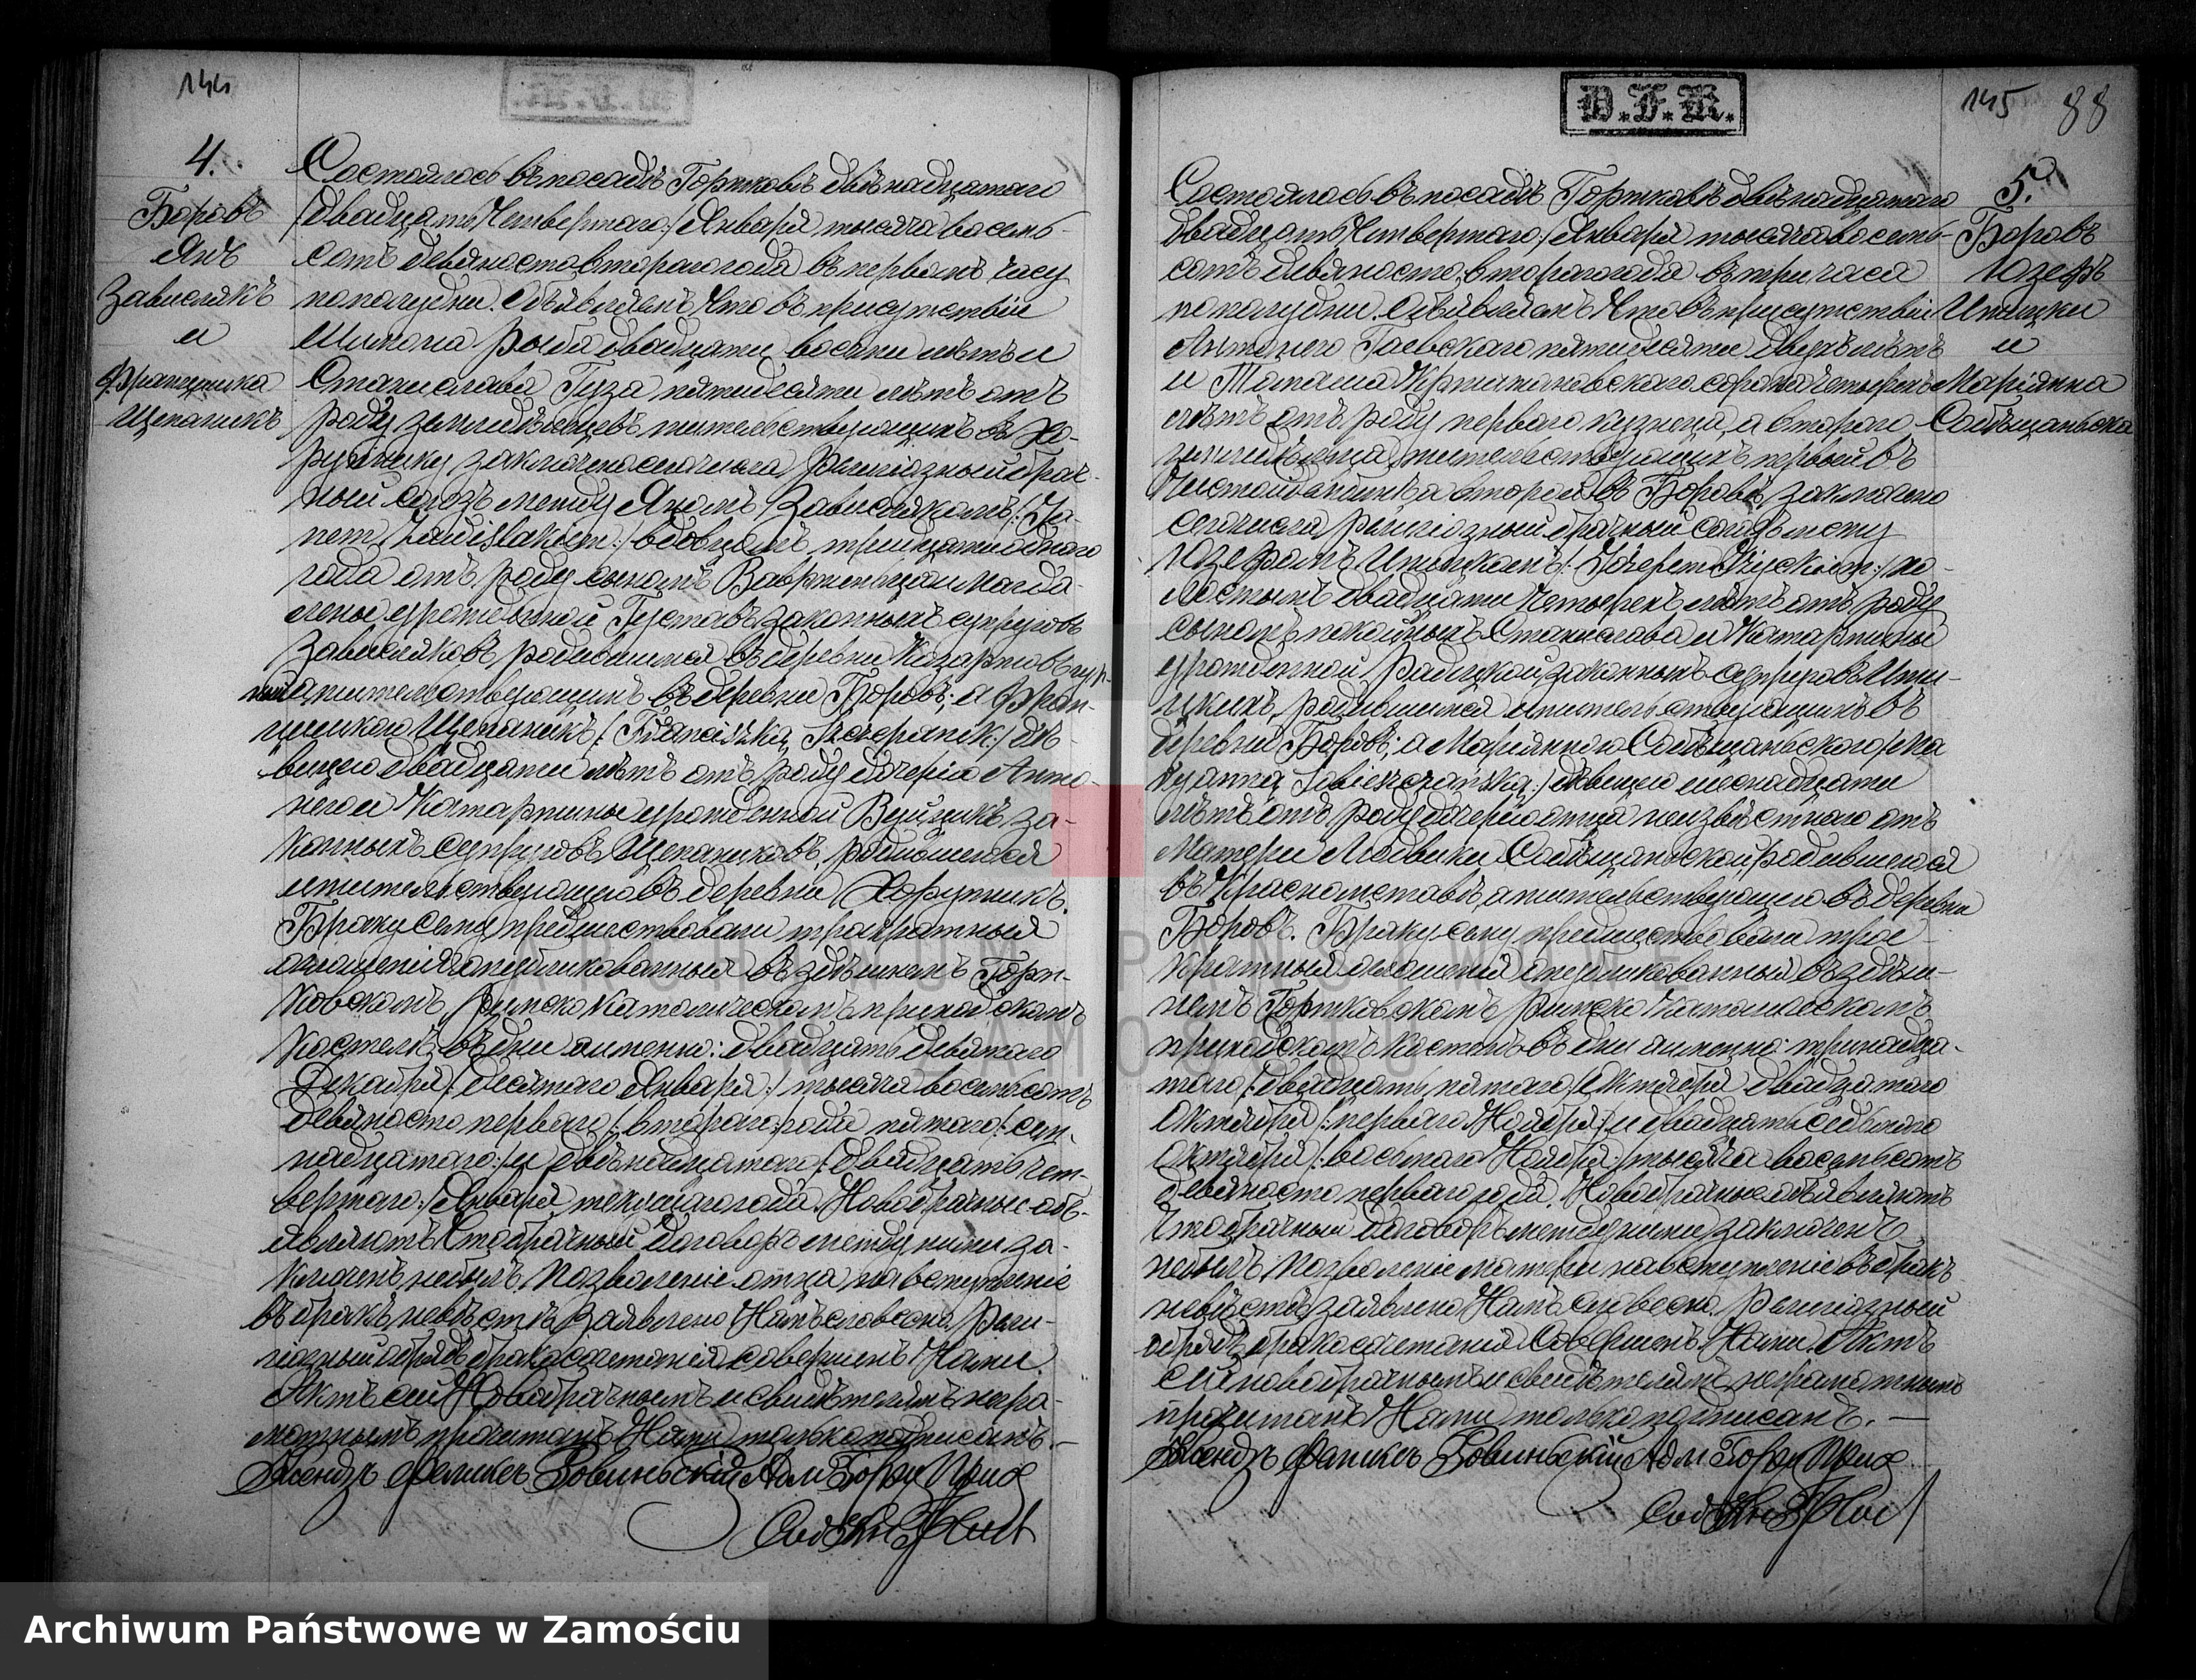 144
4.
Боровъ
Янъ
Завислякъ
и
Францишка
Щепаникъ
Состоялось въ посадѣ Горжковѣ двѣнадцатаго
/двадцать Четвертаго:/ Января тысяча восемь-
сотъ девяносто втораго года въ первомъ часу
пополудни. Объявляемъ Что въ присутствіи
Шимона Рыба двадцати восьми лѣтъ и
Станислава Гуза пятидесяти лѣтъ отъ
роду земледѣльцевъ жительствующихъ въ Хо-
рупнику заключенъ сего числа религіозный брач-
ный союзъ между Яномъ Завислякомъ /: Ja-
nem Zawislakiem:/ вдовцомъ, тридцати одного
года отъ роду сыномъ Вавржинца и Магда-
лены урожденной Густавъ законныхъ супруговъ
Зависляковъ, родившимся въ деревни
жительствующимъ въ деревни Боровъ; а Фран-
цишкою Щепаникъ /: Franciszką Szczepanik:/ дѣ-
вицею двадцати лѣтъ отъ роду дочерію Анто-
него и Катаржины урожденной Вуйцикъ за-
конныхъ супруговъ Щепаниковъ, родившеюся
и жительствующею въ деревни Хорупникъ.
Браку сему предшествовали троекратныя
оглашенія опубликованныя въ здѣшнемъ Горж-
ковскомъ Римско Католическомъ приходскомъ
Костелѣ въ дни а именно: двадцать девятаго
Декабря /: десятаго Января:/ тысяча восемьсотъ
девяносто перваго /: втораго:/ года пятаго /: сем-
надцатаго:/ и двѣнадцатаго /: двадцать чет-
вертаго:/ Января текущаго года. Новобрачные объ-
являютъ Что брачный договоръ между ними за-
ключенъ небылъ. Позволеніе отца на вступленіе
въ бракъ невѣстѣ заявлено Намъ словесно. Рели-
гіозный обрядъ бракосочетанія совершенъ Нами.
Актъ сей Новобрачнымъ и свидѣтелямъ негра-
мотнымъ прочитанъ Нами только подписанъ.—
Ксендзъ Феликсъ
145 88
D.F.R.
5.
Боровъ
Юзефъ
Ипицки
и
Маріянна
Собѣщаньска
Состоялось въ посадѣ Горжковѣ двѣнадцатаго
двадцать Четвертаго:/ Января тысяча восемь-
сотъ девяносто втораго года въ три часа
по полудни. Объявляемъ Что въ присутствіи
Антонего Гаевскаго пятидесяти двухъ лѣтъ
и Томаша сорока четырехъ
лѣтъ отъ роду перваго кузнеца, а втораго
земледѣльца, жительствующихъ первый въ
а второй въ Боровѣ, заключенъ
сего числа религіозный брачный союзъ между
Юзефомъ Ипицкимъ /: Józefem :/ хо-
лостымъ двадцати Четырехъ лѣтъ отъ роду
сыномъ покойныхъ Станислава и Катаржины
урожденной законныхъ супруговъ Ипи-
цкихъ, родившимся и жительствующимъ въ
деревни Боровъ; а Маріянною Собѣщаньскою /: Ma
ryanną Sobieszczańską:/ дѣвицею шеснадцати
лѣтъ отъ роду дочерію отца неизвѣстнаго отъ
Матери Людвики Собѣщаньской, родившеюся
въ Красномставѣ, а жительствующею въ деревни
Боровъ. Браку сему предшествовали трое-
кратныя оглашенія опубликованныя въ здѣш-
немъ Горжковскомъ Римско Католическомъ
приходскомъ Костелѣ въ дни а именно: тринадца-
таго /: двадцать пятаго:/ Октября двадцатаго
Октября /: перваго Ноября:/ и двадцать седьмаго
Октября /: восьмаго Ноября:/ тысяча восемьсотъ
девяносто перваго года. Новобрачные объявляютъ
Что брачный договоръ между ними заключенъ
небылъ. Позволеніе матери на вступленіе въ бракъ
невѣстѣ заявлено Намъ словесно. Религіозный
обрядъ бракосочетанія Совершенъ Нами. Актъ
сей новобрачнымъ и свидѣтелямъ неграмотнымъ
прочитанъ Нами только подписанъ.—
Ксендзъ Феликсъ
ARCHIWUM PAŃSTWOWE
W ZAMOŚCIU
Archiwum Państwowe w Zamościu